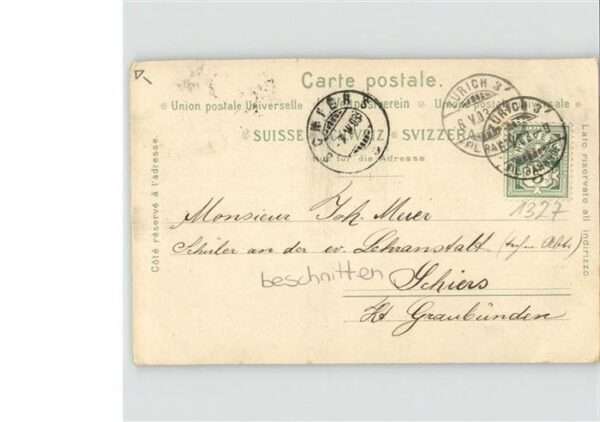 Carte postale.
Union postale Universelle Weltpostverein Unione postale Universale
SUISSE SCHWEIZ SVIZZERA
Nur für die Adresse
Côté réservé à l'adresse.
Lato riservato all indirizzo
SCHIERS
ZÜRICH 3
ZÜRICH 3
1327
Monsieur Joh. Meier
Schüler an der ev. Lehranstalt
beschnitten Schiers
Kt Graubünden